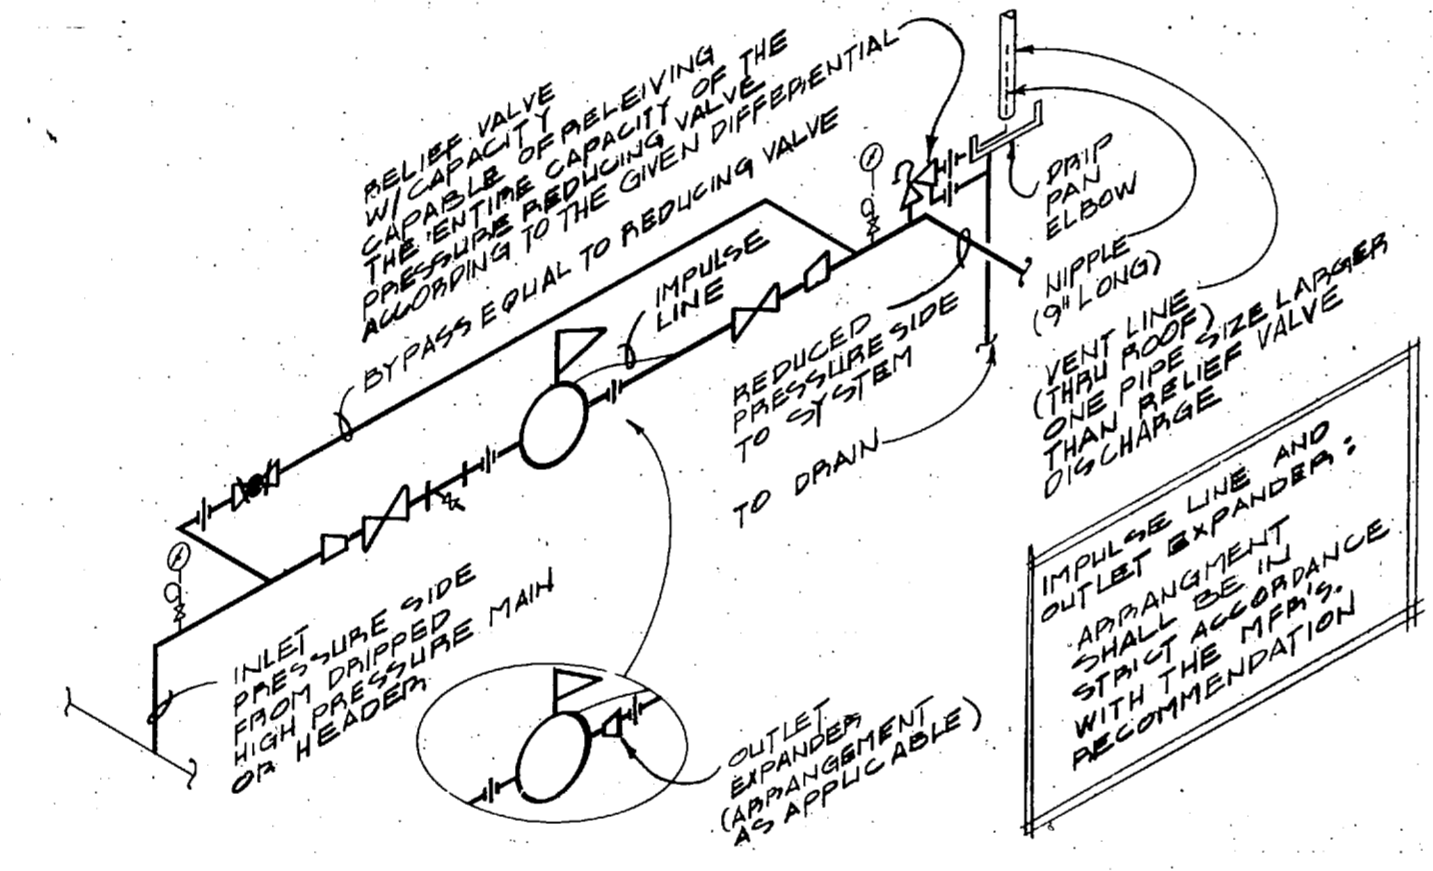 RELIEF VALVE
W/CAPACITY
CAPABLE OF RELEIVING
THE ENTIRE CAPACITY OF THE
PRESSURE REDUCING VALVE
ACCORDING TO THE GIVEN DIFFERENTIAL
BYPASS EQUAL TO REDUCING VALVE
IMPULSE
LINE
DRIP
PAN
ELBOW
NIPPLE
(9" LONG)
VENT LINE
(THRU ROOF)
ONE PIPE SIZE LARGER
THAN RELIEF VALVE
DISCHARGE
REDUCED
PRESSURE SIDE
TO SYSTEM
TO DRAIN
INLET
PRESSURE SIDE
FROM DRIPPED
HIGH PRESSURE MAIN
OR HEADER
OUTLET
EXPANDER
(ARRANGEMENT
AS APPLICABLE)
IMPULSE LINE AND
OUTLET EXPANDER:
ARRANGMENT
SHALL BE IN
STRICT ACCORDANCE
WITH THE MFR'S.
RECOMMENDATION